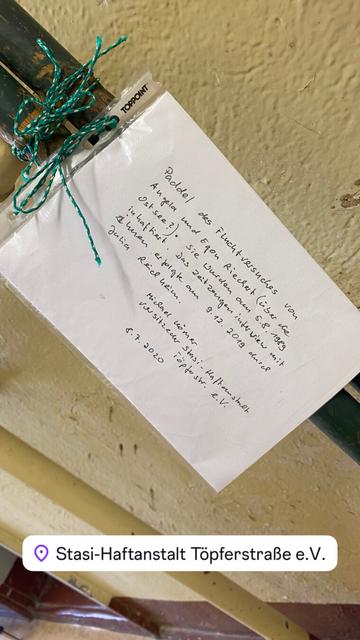 TOPPOINT
Paddel des Fluchtversuches von
Angela und Egon Riechert (über die
Ostsee?). Sie wurden am 5.8.1989
inhaftiert. Das Zeitzeugeninterview mit
Ihnen erfolgte am 9.12.2019 durch
Julia Reichheim.
Michael Körner
Vorsitzender Stasi-Haftanstalt
Töpferstr. e.V.
8.7.2020
Stasi-Haftanstalt Töpferstraße e.V.